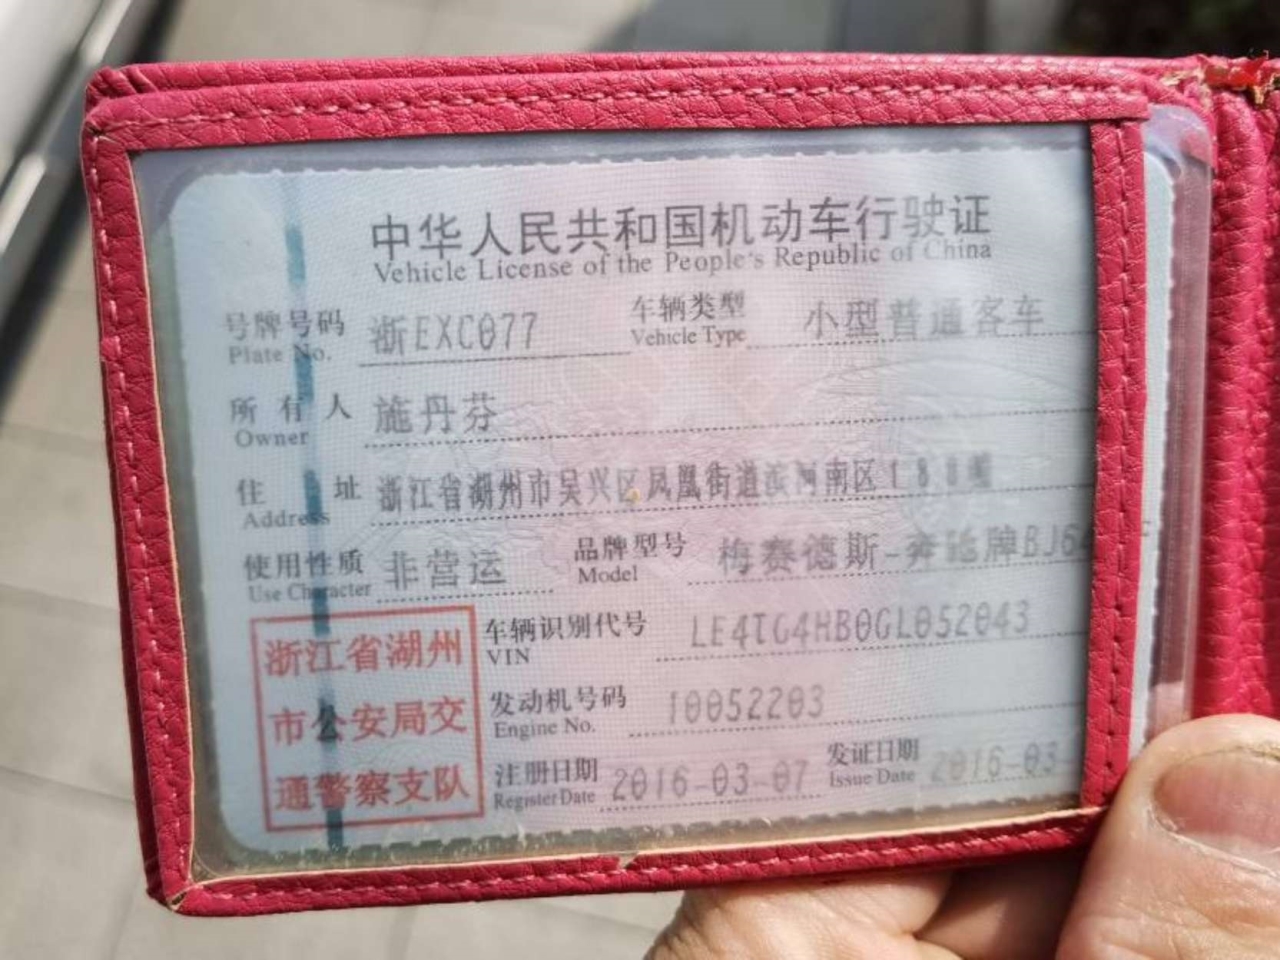 中华人民共和国机动车行驶证
Vehicle License of the People's Republic of China
号牌号码 浙EXC077 车辆类型 小型普通客车
Plate No. Vehicle Type
所有人 施丹芬
Owner
住址 浙江省湖州市吴兴区凤凰街道滨河南区188幢
Address
使用性质 非营运 品牌型号 梅赛德斯-奔驰牌BJ6
Use Character Model
浙江省湖州
市公安局交
通警察支队
车辆识别代号
VIN
发动机号码 10052203
Engine No.
注册日期 2016-03-07 发证日期 2016-03-
Register Date Issue Date